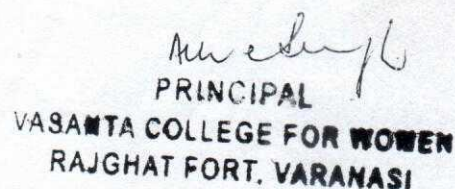 PRINCIPAL
VASANTA COLLEGE FOR WOMEN
RAJGHAT FORT. VARANASI